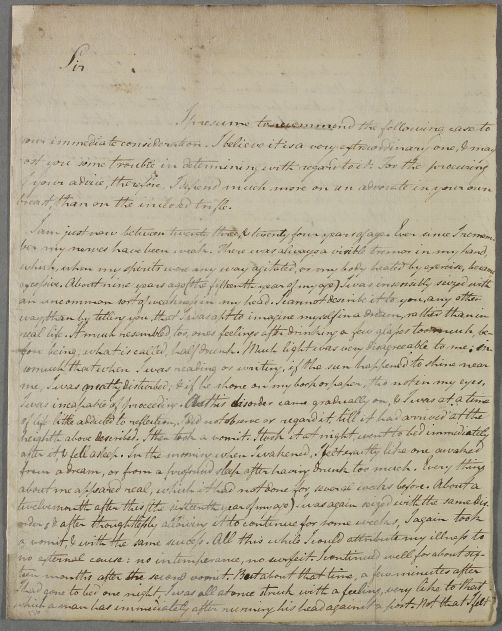 Sir
I presume to recommend the following case to
your immediate consideration. I believe it is a very extraordinary one, & may
cost you some trouble in determining with regard to it. For the procuring
of your advice, therefore, I depend much more on an advocate in your own
breast, than on the inclosed trifle.
I am just now between twenty three, & twenty four years of age. Ever since I remem-
ber my nerves have been weak. There was always a visible tremor in my hand,
which, when my spirits were any way agitated, or my body heated by exercise, became
excessive. About nine years ago (the fifteenth year of my age) I was invisibly seized with
an uncommon sort of weakness in my head. I cannot describe it to you, any other
way, than by telling you, that I was apt to imagine myself in a dream, rather than in
real life. It much resembled, too, one's feelings after drinking a few glasses too much, be-
fore being, what is called, half drunk. Much light was very disagreeable to me; in-
somuch that when I was reading or writing, if the sun happened to shine near
me, I was greatly disturbed; & if he shone on my book or paper, tho not in my eyes,
I was incapable of proceeding. As this disorder came gradually on, & I was at a time
of life little addicted to reflection, I did not observe or regard it, till it had arrived at the
height above described. I then took a vomit. I took it at night, went to bed immediately
after it & fell asleep. In the morning when I wakened, I felt exactly like one awaked
from a dream, or from a profound sleep after having drunk too much. Every thing
about me appeared real, which it had not done for several weeks before. About a
twelvemonth after this (the sixteenth year of my age) I was again seized with the same dis-
order; & after thoughtlessly allowing it to continue for some weeks, I again took
a vomit, & with the same success. All this while I could attribute my illness to
no external cause; no intemperance, no surfeit. I continued well for about six-
teen months after the second vomit. But about that time, a few minutes after
I had gone to bed one night, I was all at once struck with a feeling, very like to that
which a man has immediately after running his head against a post. Not that I felt